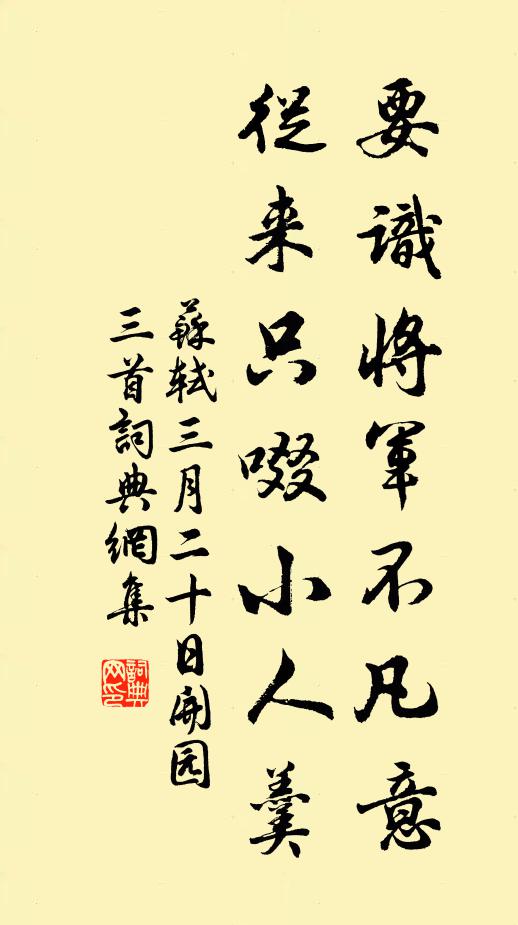 要識將軍不凡意
從来只啜小人羹
蘇軾三月二十日開园
三首詞典網集
詞典网印